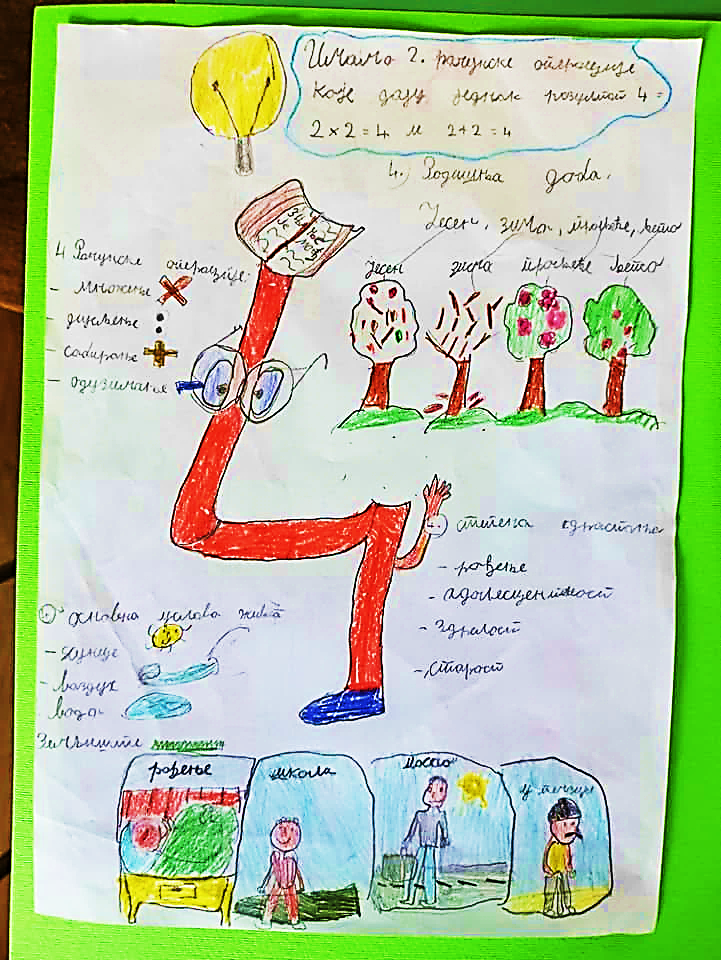 Имамо 2. рачунске операције
које дају једнак резултат 4 =
2 × 2 = 4 и 2 + 2 = 4
4.) Годишња доба.
Јесен, зима, пролеће, лето
јесен зима пролеће лето
4 Рачунске операције:
- множење
- дијељење
- сабирање
- одузимање
4. степена одрастања
- рођење
- адолесцентност
- Зрелост
- Старост
4. основна услова живота
- сунце
- ваздух
- вода
Земљиште
рођење школа посао у пензији